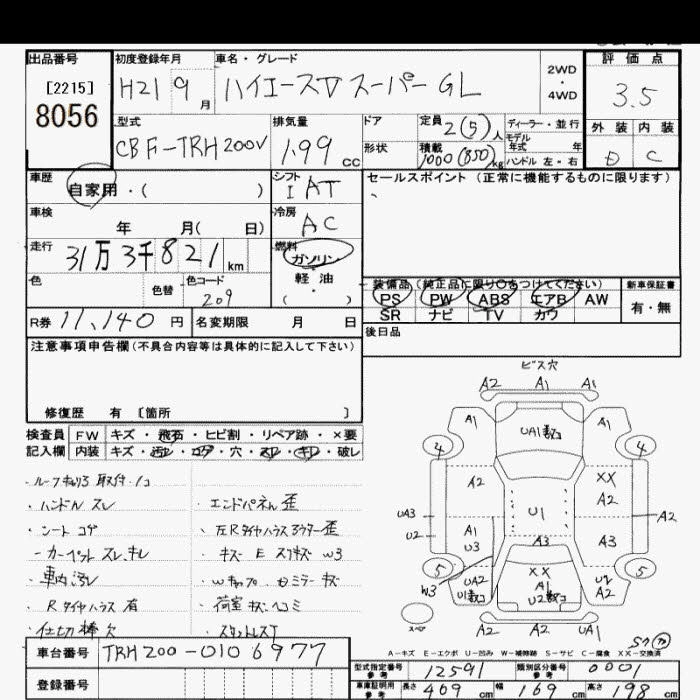 出品番号 初度登録年月 車名・グレード 評価点
[2215]
8056
H21 9月 ハイエースV スーパーGL 2WD・4WD 3.5
型式 排気量 ドア 定員 2(5)人 ディーラー・並行 外装 内装
CBF-TRH200V 1.99cc 形状 積載 1000(850)kg モデル年式 年 D C
ハンドル 左・右
車歴 自家用・( ) シフト I AT セールスポイント (正常に機能するものに限ります)
車検 年 月( 日) 冷房 AC
走行 31万3千821km 燃料 ガソリン
軽・油
・( )
色 色替 色コード 209
装備品 (純正品に限り○をつけてください) 新車保証書
PS PW ABS エアB AW 有・無
SR ナビ TV カワ
R券 11,140円 名変期限 月 日 後日品
注意事項申告欄 (不具合内容等は具体的に記入して下さい)
修復歴 有 [箇所 ]
検査員 FW キズ・飛石・ヒビ割・リペア跡・×要
記入欄 内装 キズ・汚レ・コゲ・穴・スレ・キレ・破レ
・ハンドル スレ ・エンドパネル 歪
・シート コゲ ・左Rタイヤハウスアウター歪
-カーペット スレ、キレ ・キズ E スリキズ W3
・車内汚レ
・Rタイヤハウス 有 ・荷室 キズ・ヘコミ
・仕切棒欠
車台番号 TRH200-0106977
登録番号
ビス穴
A2 A1 A1
A1 UA1 A1
4 4
A2 XX
A2
UA3 U1 A2
U2 A1 A3 A3
U3
5 XX 5
UA2 A1 U2
W3 U1 U2 A2
A2 A2
スペア
A-キズ E-エクボ U-凹み W-補修跡 S-サビ C-腐食 XX-交換済
型式指定番号 参考 12591 類別区分番号 参考 0001
車庫証明用 参考 長さ 469cm 幅 169cm 高さ 198cm